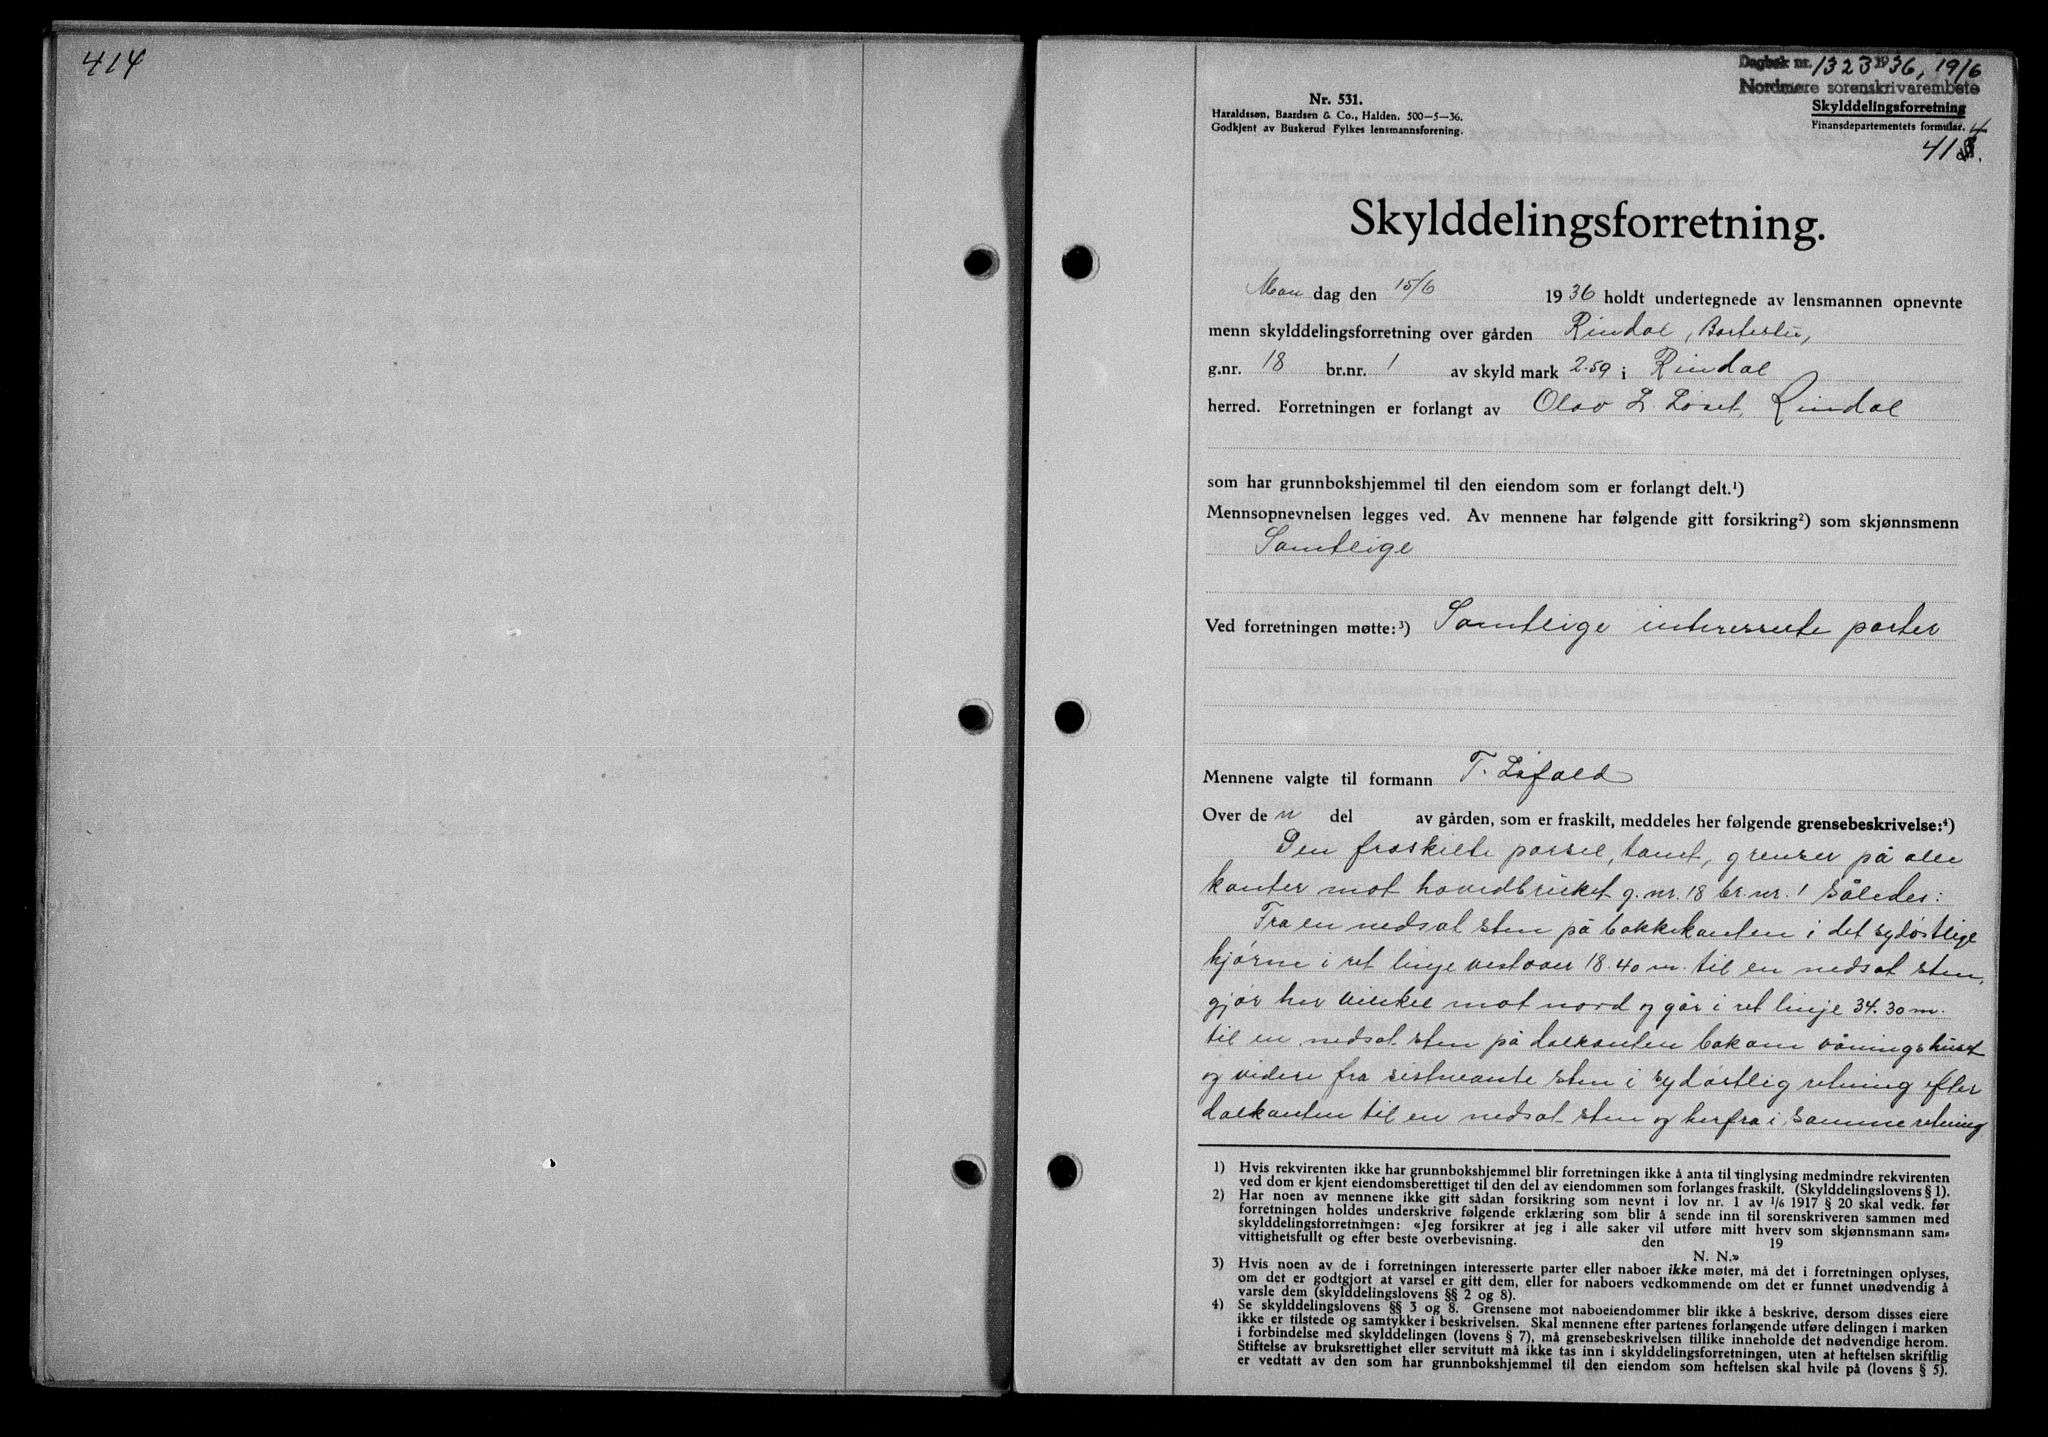 414
Dagbok nr. 1323 1936, 19/6
Nordmøre sorenskrivarembete
Skylddelingsforretning
Finansdepartementets formular. 4
Nr. 531.
Haraldssøn, Baardsen & Co., Halden. 500—5—36.
Godkjent av Buskerud Fylkes lensmannsforening.
Skylddelingsforretning.
Man dag den 15/6 1936 holdt undertegnede av lensmannen opnevnte
menn skylddelingsforretning over gården Rindal, Bortestu,
g.nr. 18 br.nr. 1 av skyld mark 2.59 i Rindal
herred. Forretningen er forlangt av Olav L. Løset, Rindal
som har grunnbokshjemmel til den eiendom som er forlangt delt.¹)
Mennsopnevnelsen legges ved. Av mennene har følgende gitt forsikring²) som skjønnsmenn
Samtlige
Ved forretningen møtte:³) Samtlige interesserte parter
Mennene valgte til formann T. Løfald
Over de n del av gården, som er fraskilt, meddeles her følgende grensebeskrivelse:⁴)
Den fraskilte parsel, tomt, grenser på alle
kanter mot hovedbruket g.nr. 18 br.nr. 1 således:
Fra en nedsat sten på bakkekanten i det sydøstlige
hjørne i ret linje vestover 18.40 m. til en nedsat sten,
gjør her vinkel mot nord og går i ret linje 34.30 m.
til en nedsat sten på dalkanten bakom våningshuset
og videre fra sistnevnte sten i sydøstlig retning efter
dalkanten til en nedsat sten og herfra i samme retning
1) Hvis rekvirenten ikke har grunnbokshjemmel blir forretningen ikke å anta til tinglysing medmindre rekvirenten
ved dom er kjent eiendomsberettiget til den del av eiendommen som forlanges fraskilt. (Skylddelingslovens § 1).
2) Har noen av mennene ikke gitt sådan forsikring som nevnt i lov nr. 1 av 1/6 1917 § 20 skal vedk. før
forretningen holdes underskrive følgende erklæring som blir å sende inn til sorenskriveren sammen med
skylddelingsforretningen: «Jeg forsikrer at jeg i alle saker vil utføre mitt hverv som skjønnsmann sam-
vittighetsfullt og efter beste overbevisning. den 19
N. N.»
3) Hvis noen av de i forretningen interesserte parter eller naboer ikke møter, må det i forretningen oplyses,
om det er godtgjort at varsel er gitt dem, eller for naboers vedkommende om det er funnet unødvendig å
varsle dem (skylddelingslovens §§ 2 og 8).
4) Se skylddelingslovens §§ 3 og 8. Grensene mot naboeiendommer blir ikke å beskrive, dersom disses eiere
ikke er tilstede og samtykker i beskrivelsen. Skal mennene efter partenes forlangende utføre delingen i marken
i forbindelse med skylddelingen (lovens § 7), må grensebeskrivelsen tillike inneholde det nødvendige herom.
Stiftelse av bruksrettighet eller servitutt må ikke tas inn i skylddelingsforretningen, uten at heftelsen skriftlig
er vedtatt av den som har grunnbokshjemmel til den eiendom som heftelsen skal hvile på (lovens § 5).